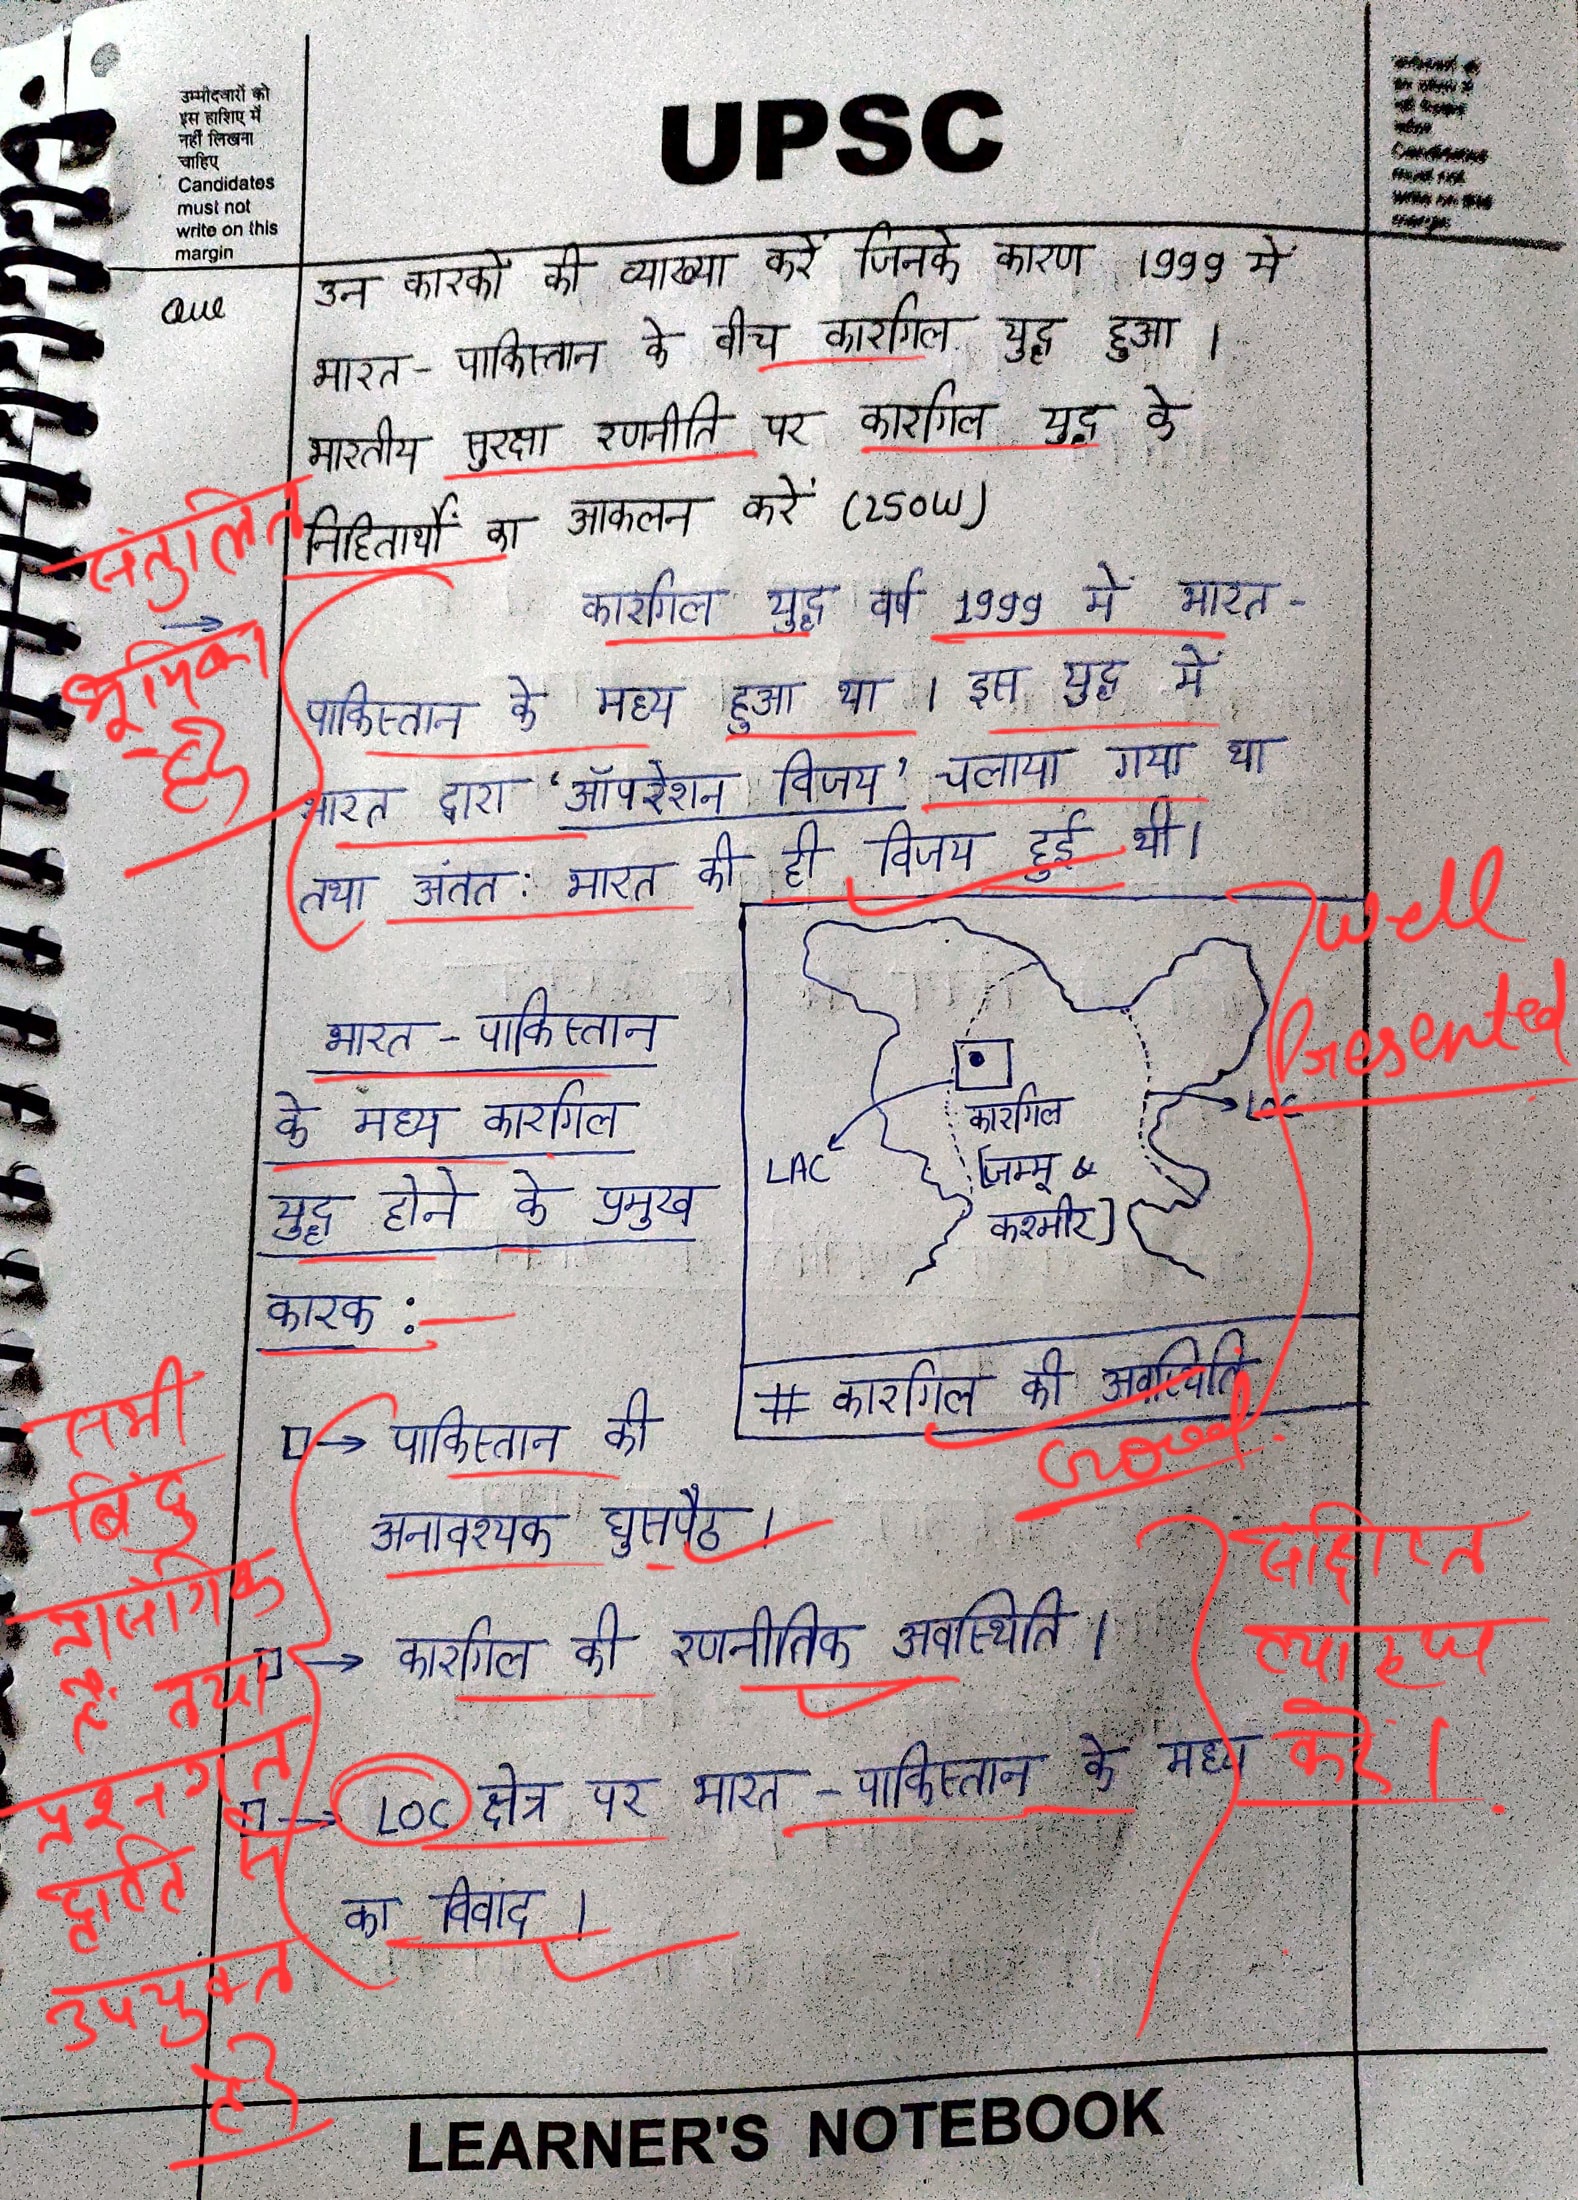 उम्मीदवारों को
इस हाशिए में
नहीं लिखना
चाहिए
Candidates
must not
write on this
margin
UPSC
Que
उन कारकों की व्याख्या करें जिनके कारण 1999 में
भारत - पाकिस्तान के बीच कारगिल युद्ध हुआ ।
भारतीय सुरक्षा रणनीति पर कारगिल युद्ध के
निहितार्थों का आकलन करें (250W)
संतुलित
भूमिका
है
कारगिल युद्ध वर्ष 1999 में भारत -
पाकिस्तान के मध्य हुआ था । इस युद्ध में
भारत द्वारा 'ऑपरेशन विजय' चलाया गया था
तथा अंतत: भारत की ही विजय हुई थी।
Well
Presented
भारत - पाकिस्तान
के मध्य कारगिल
युद्ध होने के प्रमुख
कारक :
LAC
कारगिल
[जम्मू &
कश्मीर]
LOC
# कारगिल की अवस्थिति
Good.
सभी
बिंदु
प्रासंगिक
हैं तथा
प्रश्नगत
उपयुक्त
है
→ पाकिस्तान की
अनावश्यक घुसपैठ ।
→ कारगिल की रणनीतिक अवस्थिति ।
→ LOC क्षेत्र पर भारत - पाकिस्तान के मध्य
का विवाद ।
संक्षिप्त
व्याख्या
करें ।
LEARNER'S NOTEBOOK